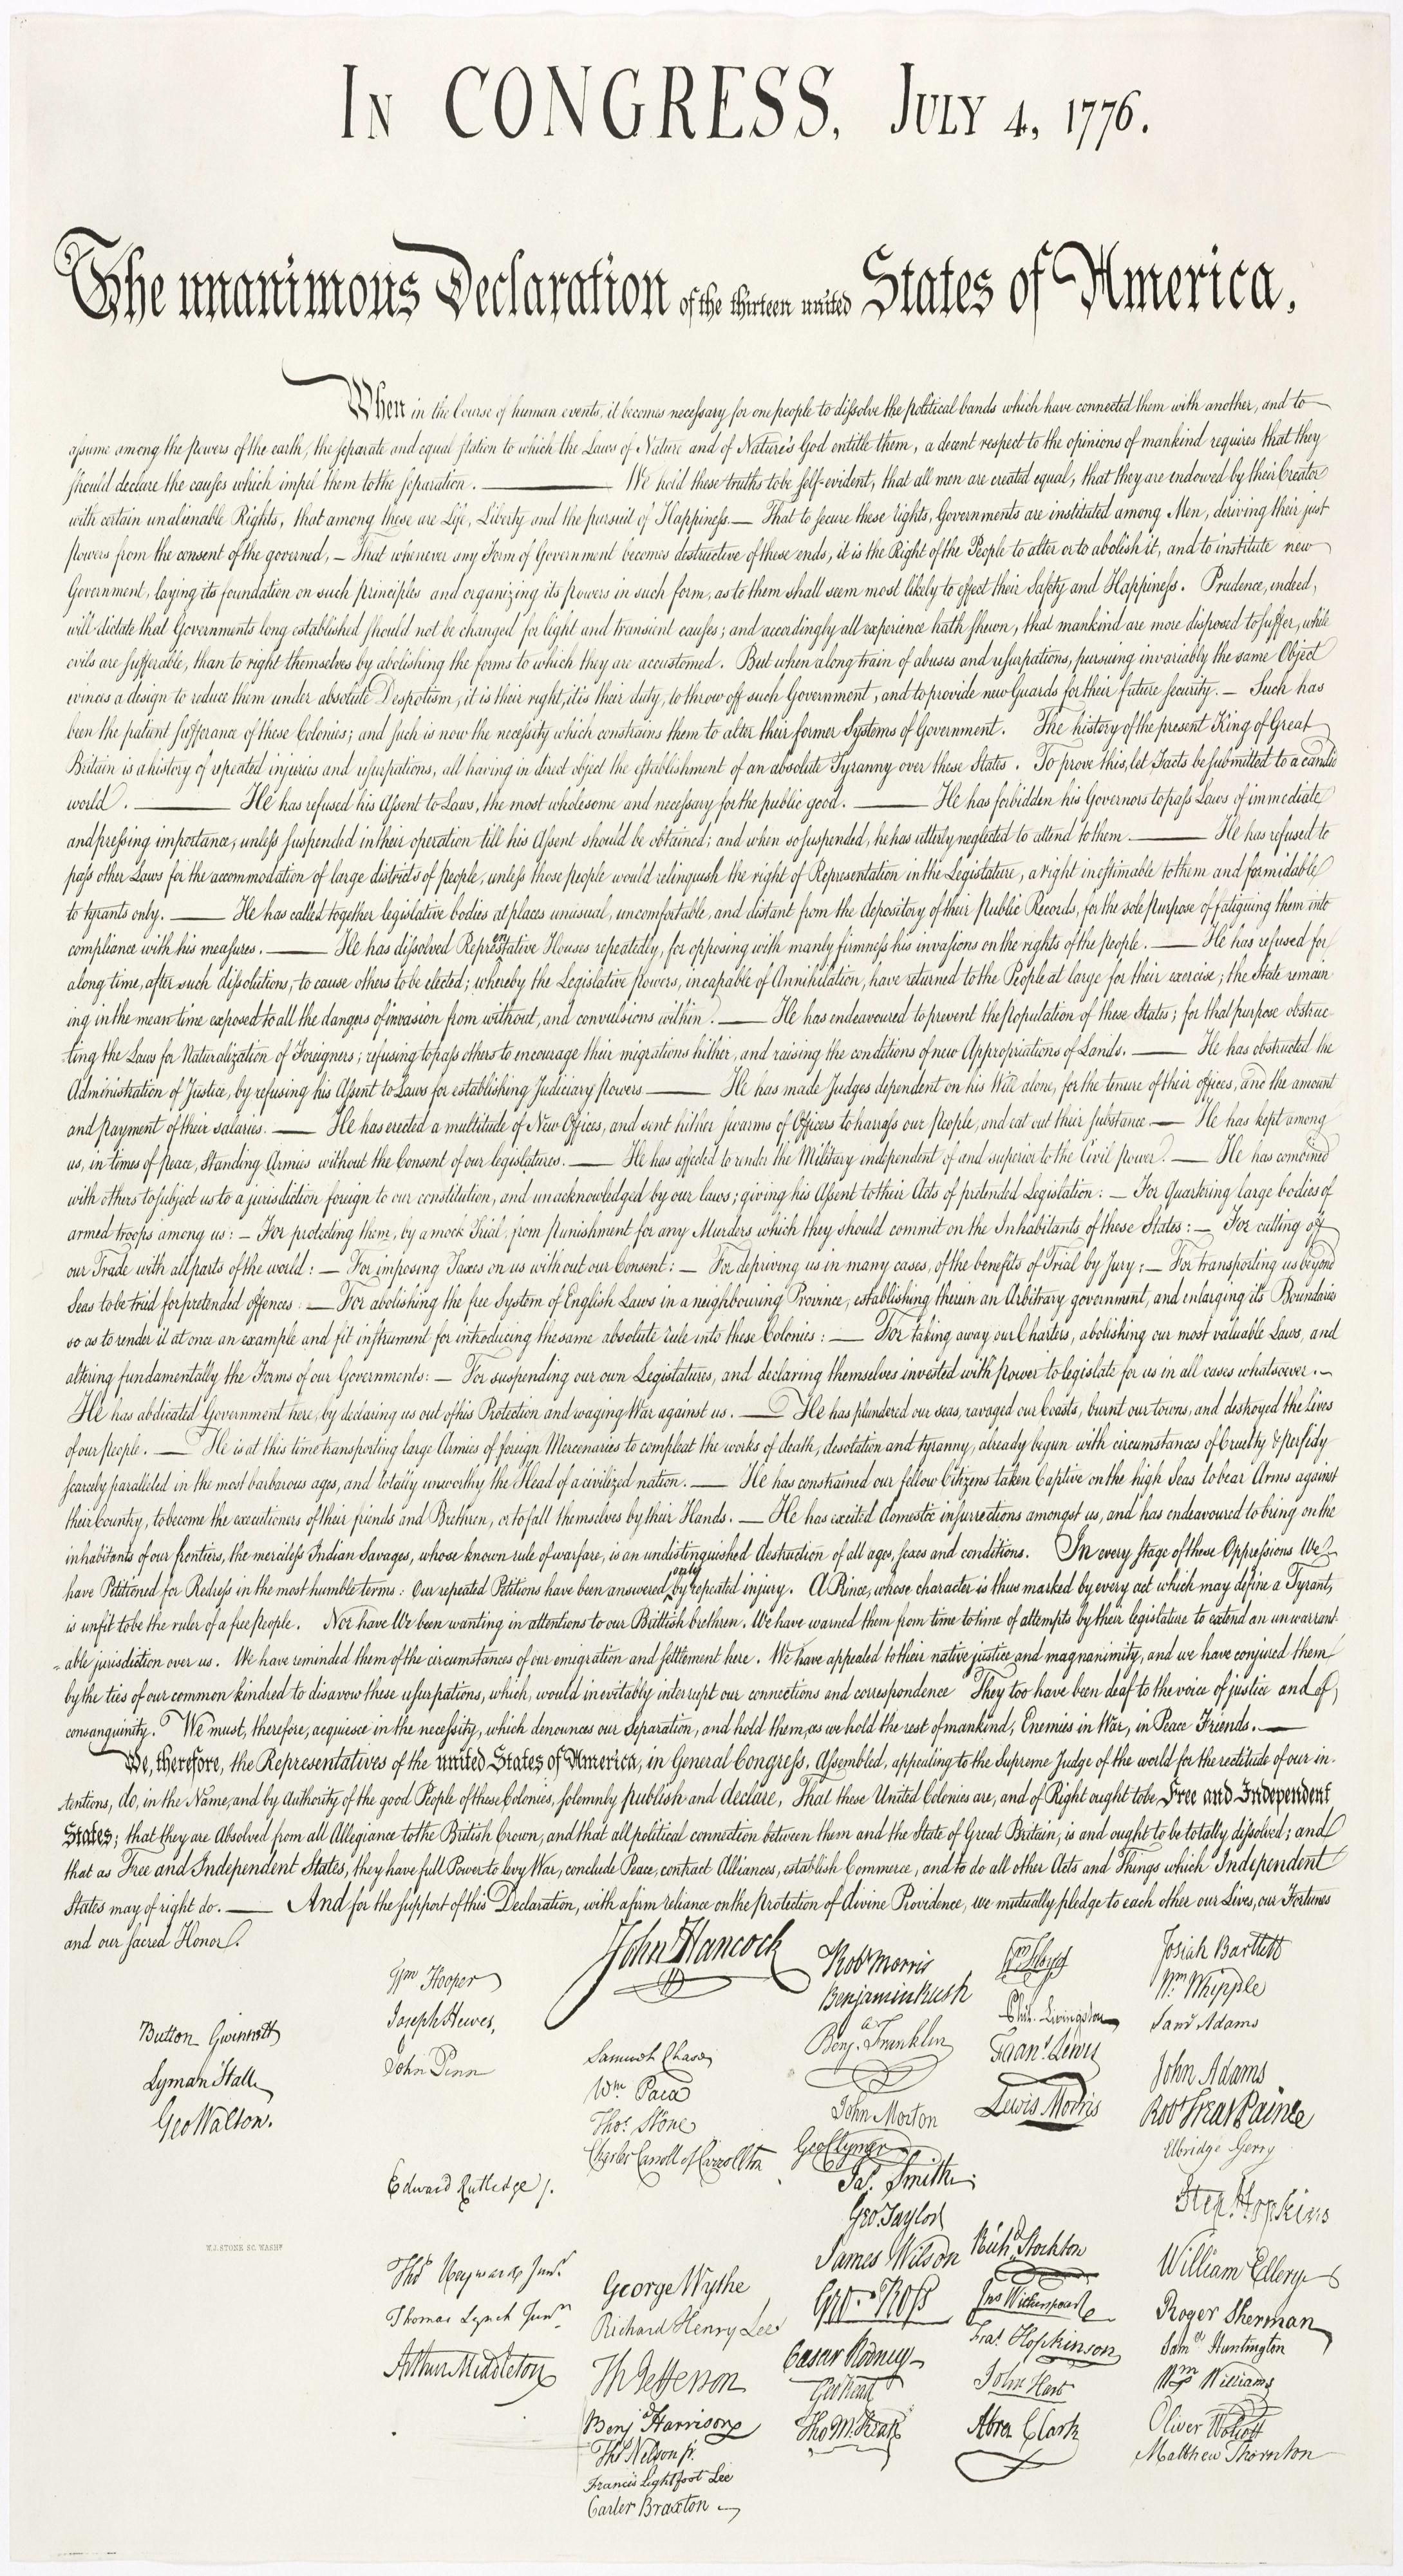 In CONGRESS, July 4, 1776.
The unanimous Declaration of the thirteen united States of America,
When in the Course of human events, it becomes necessary for one people to dissolve the political bands which have connected them with another, and to
assume among the powers of the earth, the separate and equal station to which the Laws of Nature and of Nature's God entitle them, a decent respect to the opinions of mankind requires that they
should declare the causes which impel them to the separation. — We hold these truths to be self-evident, that all men are created equal, that they are endowed by their Creator
with certain unalienable Rights, that among these are Life, Liberty and the pursuit of Happiness. — That to secure these rights, Governments are instituted among Men, deriving their just
powers from the consent of the governed, — That whenever any Form of Government becomes destructive of these ends, it is the Right of the People to alter or to abolish it, and to institute new
Government, laying its foundation on such principles and organizing its powers in such form, as to them shall seem most likely to effect their Safety and Happiness. Prudence, indeed,
will dictate that Governments long established should not be changed for light and transient causes; and accordingly all experience hath shewn, that mankind are more disposed to suffer, while
evils are sufferable, than to right themselves by abolishing the forms to which they are accustomed. But when a long train of abuses and usurpations, pursuing invariably the same Object
evinces a design to reduce them under absolute Despotism, it is their right, it is their duty, to throw off such Government, and to provide new Guards for their future security. — Such has
been the patient sufferance of these Colonies; and such is now the necessity which constrains them to alter their former Systems of Government. The history of the present King of Great
Britain is a history of repeated injuries and usurpations, all having in direct object the establishment of an absolute Tyranny over these States. To prove this, let Facts be submitted to a candid
world. — He has refused his Assent to Laws, the most wholesome and necessary for the public good. — He has forbidden his Governors to pass Laws of immediate
and pressing importance, unless suspended in their operation till his Assent should be obtained; and when so suspended, he has utterly neglected to attend to them. — He has refused to
pass other Laws for the accommodation of large districts of people, unless those people would relinquish the right of Representation in the Legislature, a right inestimable to them and formidable
to tyrants only. — He has called together legislative bodies at places unusual, uncomfortable, and distant from the depository of their Public Records, for the sole purpose of fatiguing them into
compliance with his measures. — He has dissolved Representative Houses repeatedly, for opposing with manly firmness his invasions on the rights of the people. — He has refused for
a long time, after such dissolutions, to cause others to be elected; whereby the Legislative powers, incapable of Annihilation, have returned to the People at large for their exercise; the State remain
ing in the mean time exposed to all the dangers of invasion from without, and convulsions within. — He has endeavoured to prevent the population of these States; for that purpose obstruc-
ting the Laws for Naturalization of Foreigners; refusing to pass others to encourage their migrations hither, and raising the conditions of new Appropriations of Lands. — He has obstructed the
Administration of Justice, by refusing his Assent to Laws for establishing Judiciary powers — He has made Judges dependent on his Will alone, for the tenure of their offices, and the amount
and payment of their salaries. — He has erected a multitude of New Offices, and sent hither swarms of Officers to harrass our people, and eat out their substance. — He has kept among
us, in times of peace, Standing Armies without the Consent of our legislatures. — He has affected to render the Military independent of and superior to the Civil power. — He has combined
with others to subject us to a jurisdiction foreign to our constitution, and unacknowledged by our laws; giving his Assent to their Acts of pretended Legislation: — For Quartering large bodies of
armed troops among us: — For protecting them, by a mock Trial, from punishment for any Murders which they should commit on the Inhabitants of these States: — For cutting off
our Trade with all parts of the world: — For imposing Taxes on us without our Consent: — For depriving us in many cases, of the benefits of Trial by Jury: — For transporting us beyond
Seas to be tried for pretended offences: — For abolishing the free System of English Laws in a neighbouring Province, establishing therein an Arbitrary government, and enlarging its Boundaries
so as to render it at once an example and fit instrument for introducing the same absolute rule into these Colonies: — For taking away our Charters, abolishing our most valuable Laws, and
altering fundamentally the Forms of our Governments: — For suspending our own Legislatures, and declaring themselves invested with power to legislate for us in all cases whatsoever. —
He has abdicated Government here, by declaring us out of his Protection and waging War against us. — He has plundered our seas, ravaged our Coasts, burnt our towns, and destroyed the Lives
of our people. — He is at this time transporting large Armies of foreign Mercenaries to compleat the works of death, desolation and tyranny, already begun with circumstances of Cruelty & perfidy
scarcely paralleled in the most barbarous ages, and totally unworthy the Head of a civilized nation. — He has constrained our fellow Citizens taken Captive on the high Seas to bear Arms against
their Country, to become the executioners of their friends and Brethren, or to fall themselves by their Hands. — He has excited domestic insurrections amongst us, and has endeavoured to bring on the
inhabitants of our frontiers, the merciless Indian Savages, whose known rule of warfare, is an undistinguished destruction of all ages, sexes and conditions. In every stage of these Oppressions We
have Petitioned for Redress in the most humble terms: Our repeated Petitions have been answered only by repeated injury. A Prince, whose character is thus marked by every act which may define a Tyrant,
is unfit to be the ruler of a free people. Nor have We been wanting in attentions to our Brittish brethren. We have warned them from time to time of attempts by their legislature to extend an unwarrant-
-able jurisdiction over us. We have reminded them of the circumstances of our emigration and settlement here. We have appealed to their native justice and magnanimity, and we have conjured them
by the ties of our common kindred to disavow these usurpations, which, would inevitably interrupt our connections and correspondence They too have been deaf to the voice of justice and of
consanguinity. We must, therefore, acquiesce in the necessity, which denounces our Separation, and hold them, as we hold the rest of mankind, Enemies in War, in Peace Friends. —
We, therefore, the Representatives of the united States of America, in General Congress, Assembled, appealing to the Supreme Judge of the world for the rectitude of our in-
tentions, do, in the Name, and by Authority of the good People of these Colonies, solemnly publish and declare, That these United Colonies are, and of Right ought to be Free and Independent
States; that they are Absolved from all Allegiance to the British Crown, and that all political connection between them and the State of Great Britain, is and ought to be totally dissolved; and
that as Free and Independent States, they have full Power to levy War, conclude Peace, contract Alliances, establish Commerce, and to do all other Acts and Things which Independent
States may of right do. — And for the support of this Declaration, with a firm reliance on the protection of divine Providence, we mutually pledge to each other our Lives, our Fortunes
and our sacred Honor.
Button Gwinnett
Lyman Hall
Geo Walton.
Wm Hooper
Joseph Hewes,
John Penn
Edward Rutledge /.
Thos Heyward Junr.
Thomas Lynch Junr.
Arthur Middleton
John Hancock
Samuel Chase
Wm. Paca
Thos. Stone
Charles Carroll of Carrollton
George Wythe
Richard Henry Lee
Th Jefferson
Benj Harrison
Thos Nelson jr.
Francis Lightfoot Lee
Carter Braxton
Robt Morris
Benjamin Rush
Benj. Franklin
John Morton
Geo Clymer
Jas. Smith
Geo. Taylor
James Wilson
Geo. Ross
Caesar Rodney
Geo Read
Tho M:Kean
Wm Floyd
Phil. Livingston
Frans. Lewis
Lewis Morris
Richd. Stockton
Jno Witherspoon
Fras. Hopkinson
John Hart
Abra Clark
Josiah Bartlett
Wm. Whipple
Saml Adams
John Adams
Robt Treat Paine
Elbridge Gerry
Step. Hopkins
William Ellery
Roger Sherman
Saml Huntington
Wm Williams
Oliver Wolcott
Matthew Thornton
W.J. STONE SC. WASHN